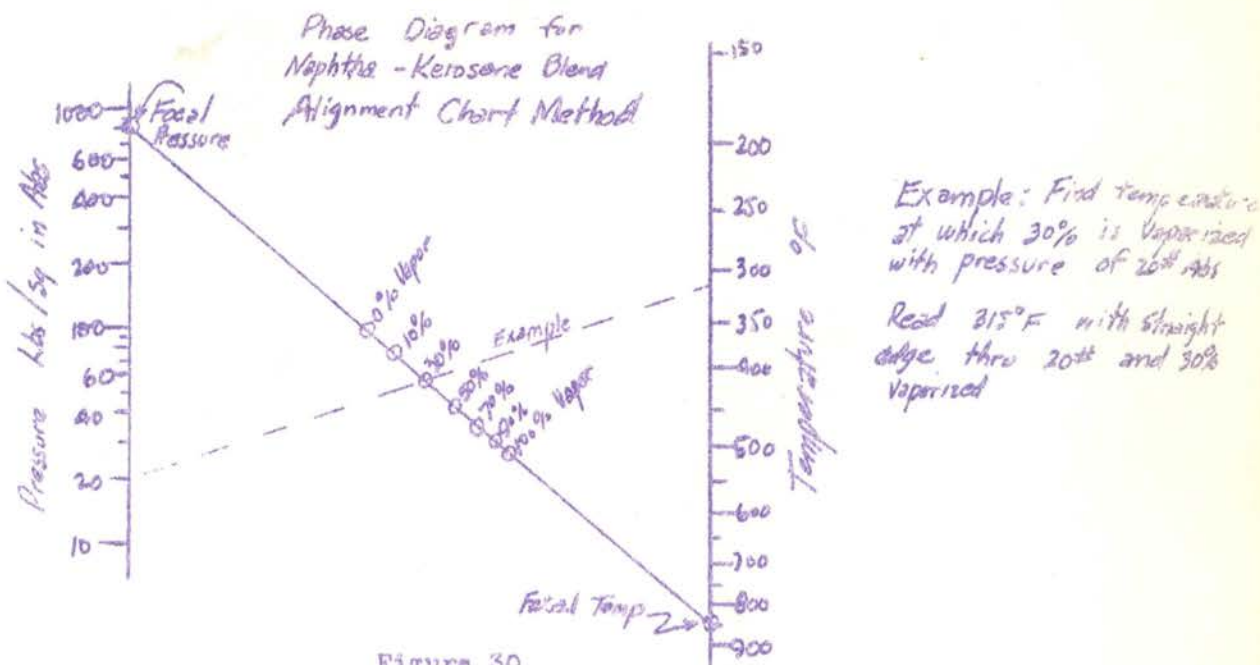 Phase Diagram for
Naphtha - Kerosene Blend
Alignment Chart Method
Focal
Pressure
1000
600
400
200
100
60
40
20
10
Pressure Lbs/Sq in Abs
0% Vapor
10%
30%
50%
70%
90%
100% Vapor
Example
150
200
250
300
350
400
500
600
700
800
900
Temperature °F
Focal Temp
Example: Find temperature
at which 30% is Vaporized
with pressure of 20# Abs
Read 315°F with straight
edge thro 20# and 30%
Vaporized
Figure 30